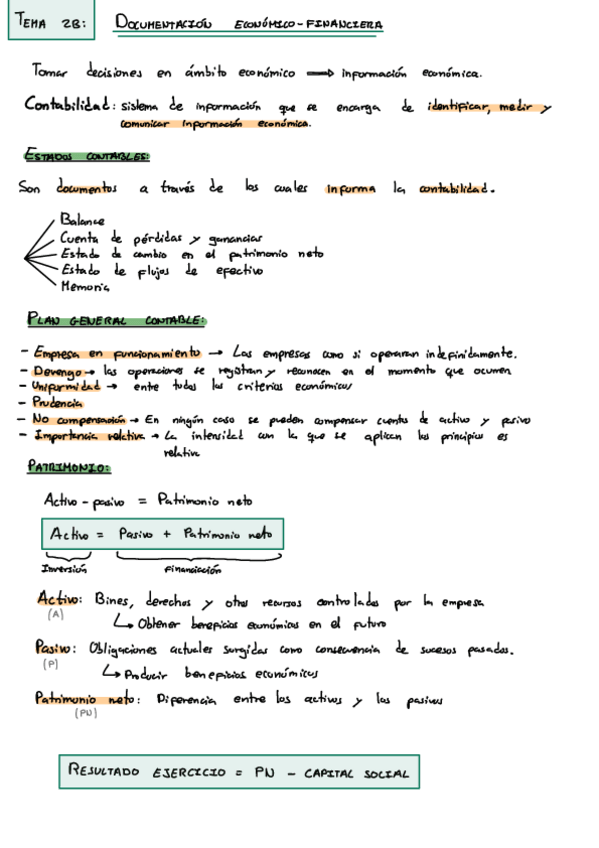 TEMA 2B: DOCUMENTACIÓN ECONÓMICO-FINANCIERA
Tomar decisiones en ámbito económico ⟹ información económica.
Contabilidad: sistema de información que se encarga de identificar, medir y
comunicar información económica.
ESTADOS CONTABLES:
Son documentos a través de los cuales informa la contabilidad.
Balance
Cuenta de pérdidas y ganancias
Estado de cambio en el patrimonio neto
Estado de flujos de efectivo
Memoria
PLAN GENERAL CONTABLE:
- Empresa en funcionamiento → Las empresas como si operaran indefinidamente.
- Devengo → las operaciones se registran y reconocen en el momento que ocurren
- Uniformidad → entre todos los criterios económicos
- Prudencia
- No compensación → En ningún caso se pueden compensar cuentas de activo y pasivo
- Importancia relativa → La intensidad con la que se aplican los principios es
relativa
PATRIMONIO:
Activo - pasivo = Patrimonio neto
Activo = Pasivo + Patrimonio neto
Inversión Financiación
Activo: Bines, derechos y otros recursos controlados por la empresa
(A)
↳ Obtener beneficios económicos en el futuro
Pasivo: Obligaciones actuales surgidas como consecuencia de sucesos pasados.
(P)
↳ Producir beneficios económicos
Patrimonio neto: Diferencia entre los activos y los pasivos
(PN)
RESULTADO EJERCICIO = PN - CAPITAL SOCIAL